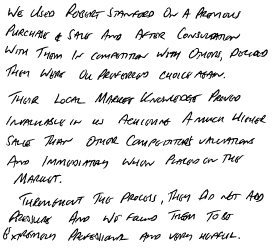 WE USED ROBERT STANFORD ON A PREVIOUS
PURCHASE & SALE AND AFTER CONSULTATION
WITH THEM IN COMPETITION WITH OTHERS, DECIDED
THEY WERE OUR PREFERRED CHOICE AGAIN.
THEIR LOCAL MARKET KNOWLEDGE PROVED
INVALUABLE IN US ACHIEVING A MUCH HIGHER
SALE THAN OTHER COMPETITORS VALUATIONS
AND IMMEDIATELY WHEN PLACED ON THE
MARKET.
THROUGHOUT THE PROCESS, THEY DID NOT ADD
PRESSURE AND WE FOUND THEM TO BE
EXTREMELY PROFESSIONAL AND VERY HELPFUL.